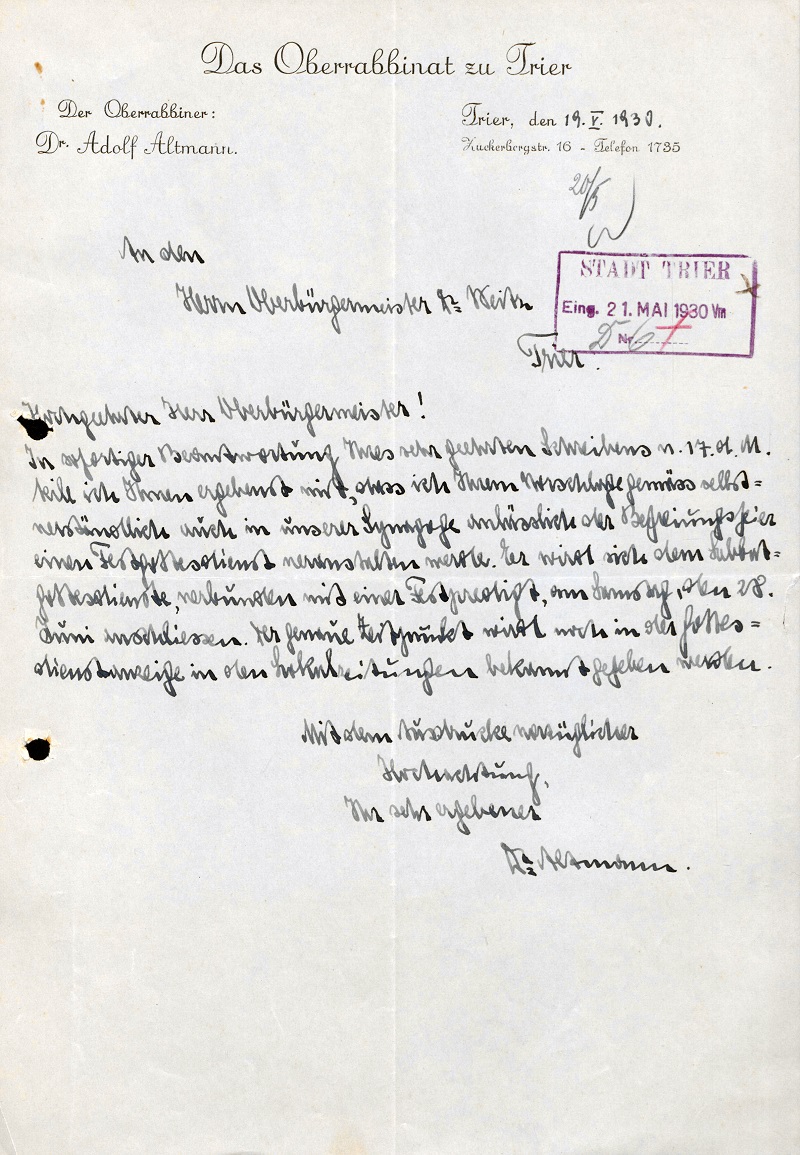 Das Oberrabbinat zu Trier
Der Oberrabbiner:
Dr. Adolf Altmann.
Trier, den 19. V. 1930.
Zuckerbergstr. 16 - Telefon 1735
20/5
An den
Herrn Oberbürgermeister Dr. Weitz
STADT TRIER
Eing. 21. MAI 1930 Vm
Nr.
Trier.
Hochgeehrter Herr Oberbürgermeister!
In sofortiger Beantwortung Ihres sehr geehrten Schreibens v. 17. d. M.
teile ich Ihnen ergebenst mit, dass ich Ihrem Vorschlage gemäss selbst=
verständlich auch in unserer Synagoge anlässlich der Befreiungsfeier
einen Festgottesdienst veranstalten werde. Er wird sich dem Sabbat=
gottesdienste, verbunden mit einer Festpredigt, am Samstag, den 28.
Juni anschliessen. Der genaue Zeitpunkt wird noch in der Gottes=
dienstanzeige in den Lokalzeitungen bekannt gegeben werden.
Mit dem Ausdrucke vorzüglicher
Hochachtung,
Ihr sehr ergebener
Dr. Altmann.